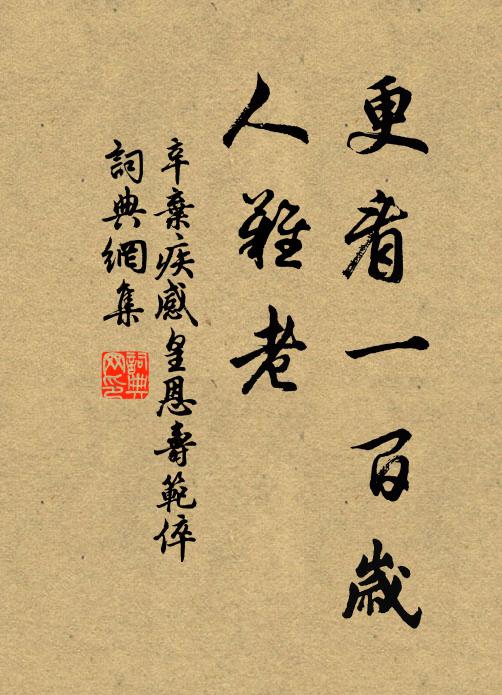 更看一百歲
人難老
辛棄疾感皇恩壽範倅
詞典網集
詞典
网印